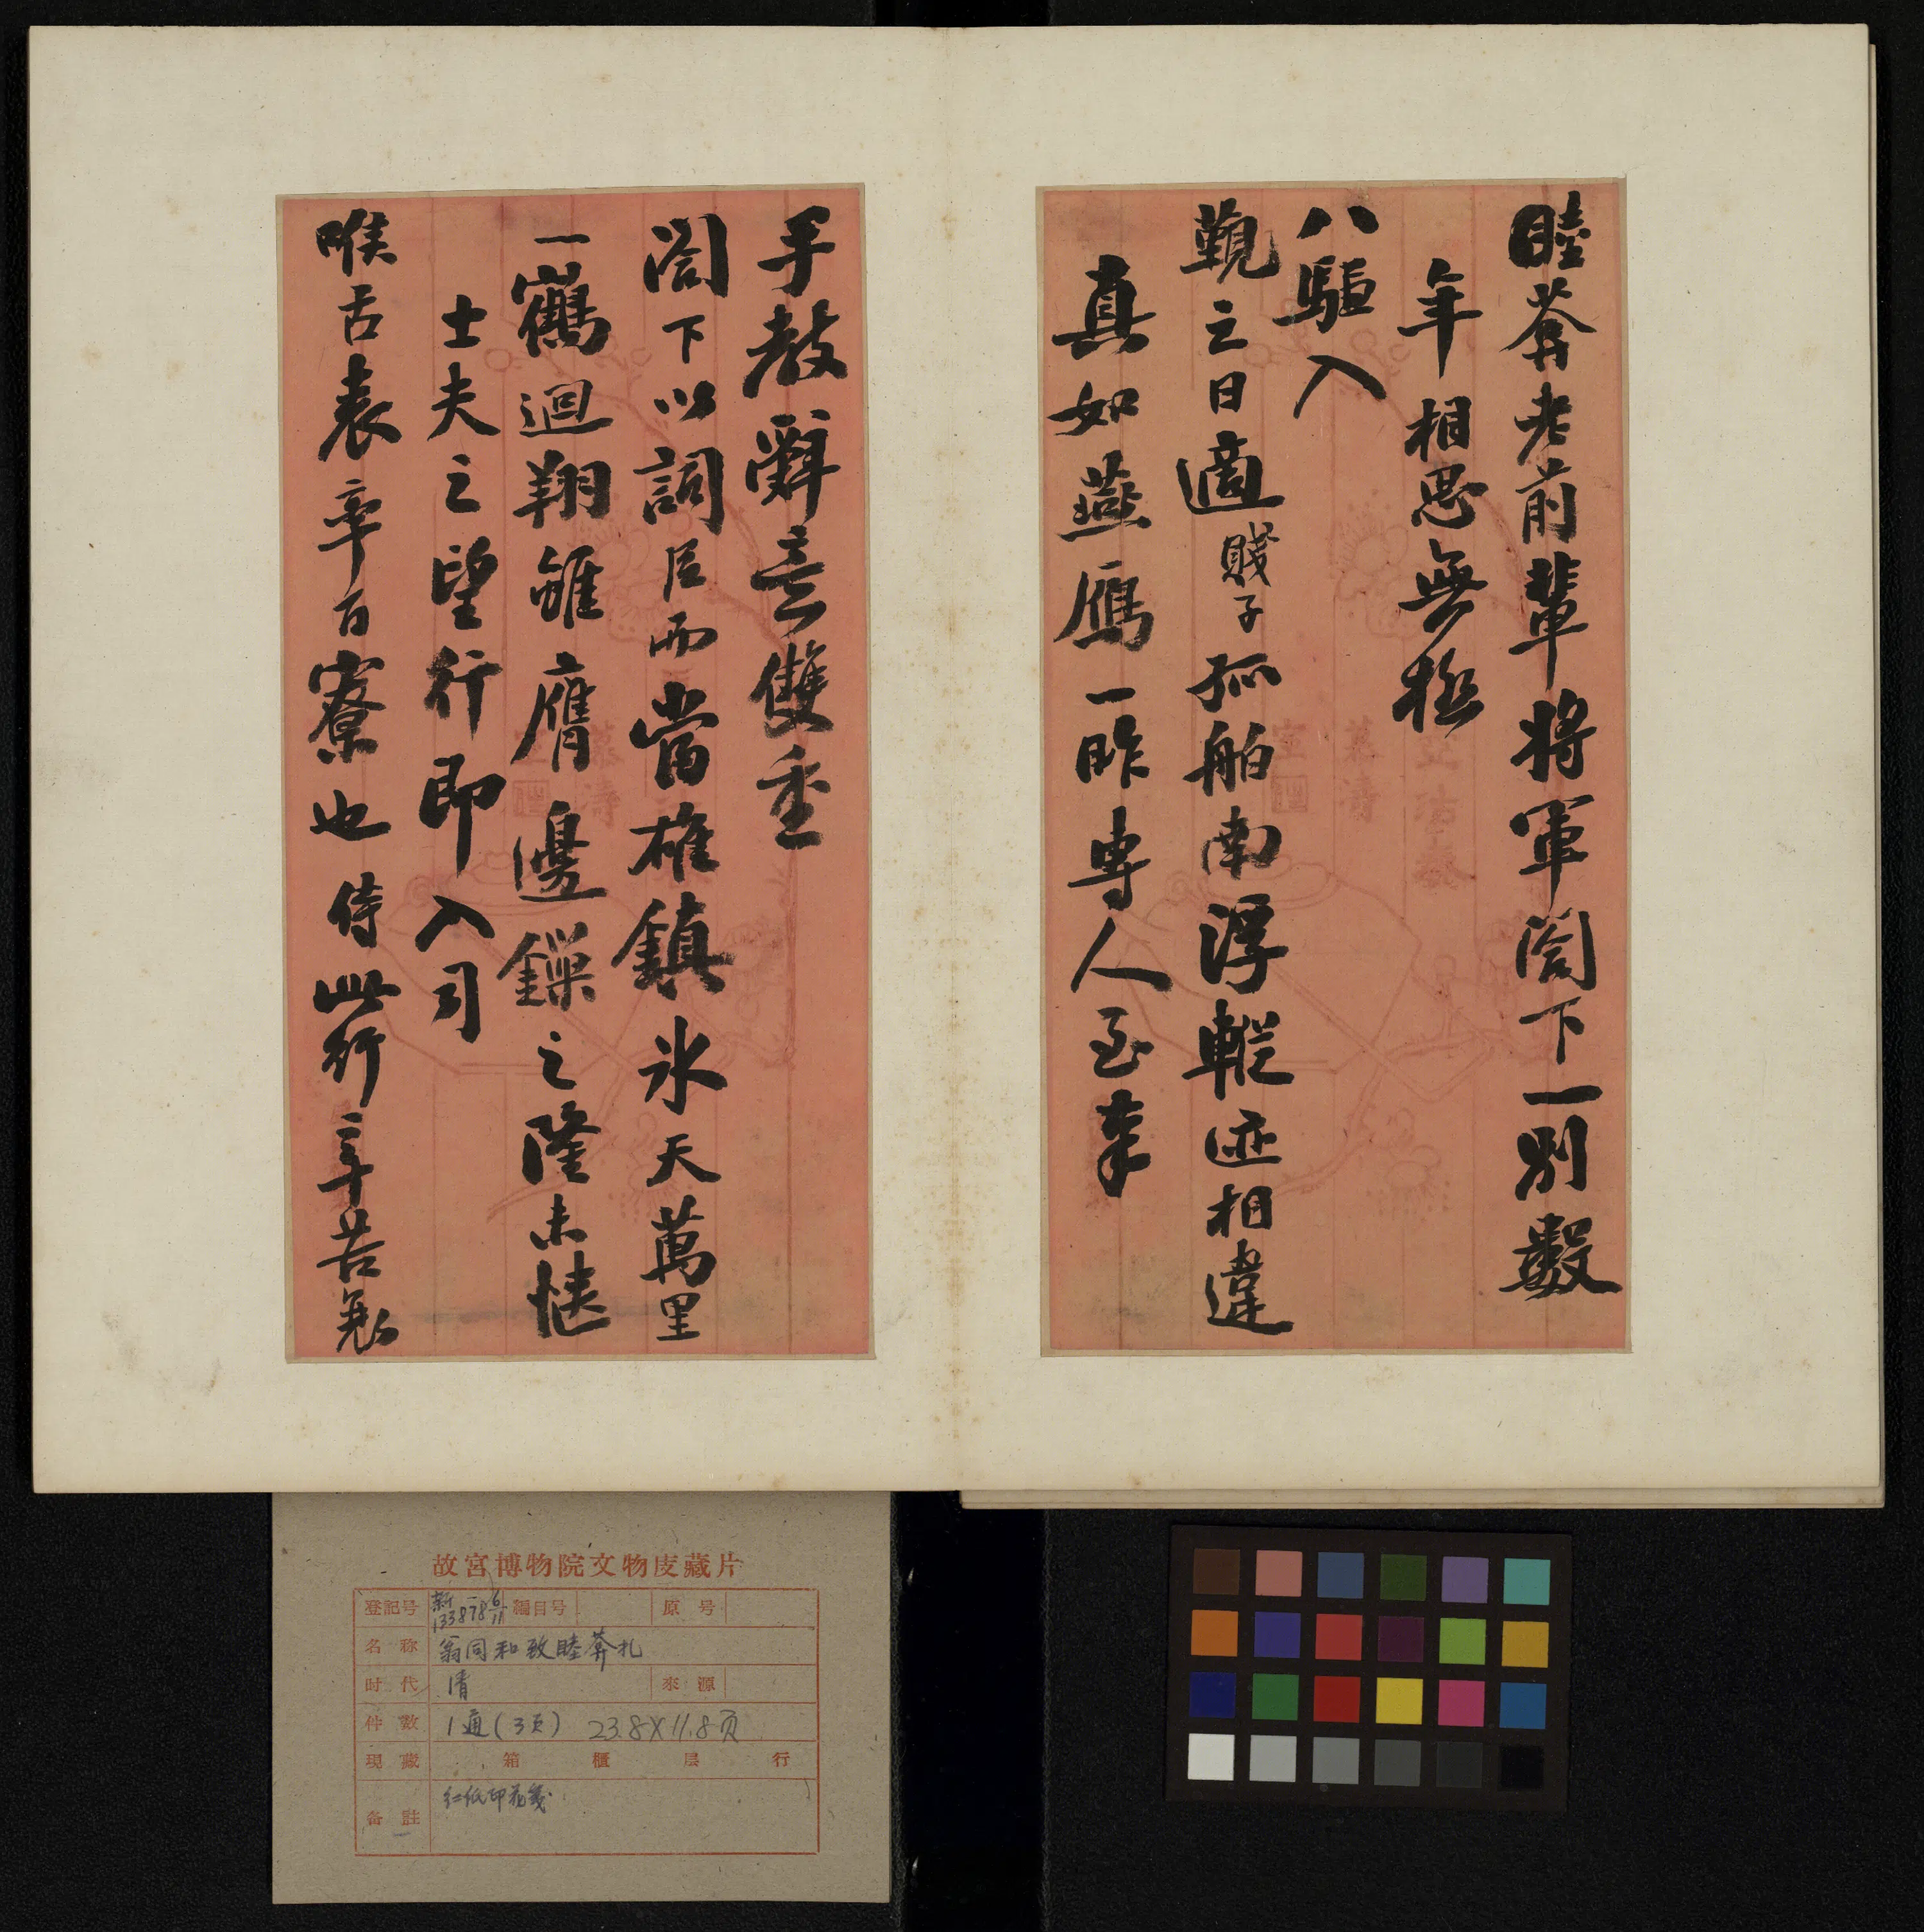 睦菴老前輩將軍閣下一別數
年相思無極
八騶入
覲之日適賤子孤舶南浮蹤迹相違
真如燕鴈一昨專人至奉
手教辭意雙重
閣下以詞臣而當雄鎮冰天萬里
一鶴迴翔雖膺邊鏁之隆未愜
士夫之望行即入司
喉舌表率百寮也侍此行辛苦
故宮博物院文物庋藏片
登記号 新133878 6/11 編目号 原号
名称 翁同和致睦菴札
时代 清 來源
件數 1通(3页) 23.8X11.8页
現藏 箱 櫃 层 行
备註 红纸印花箋